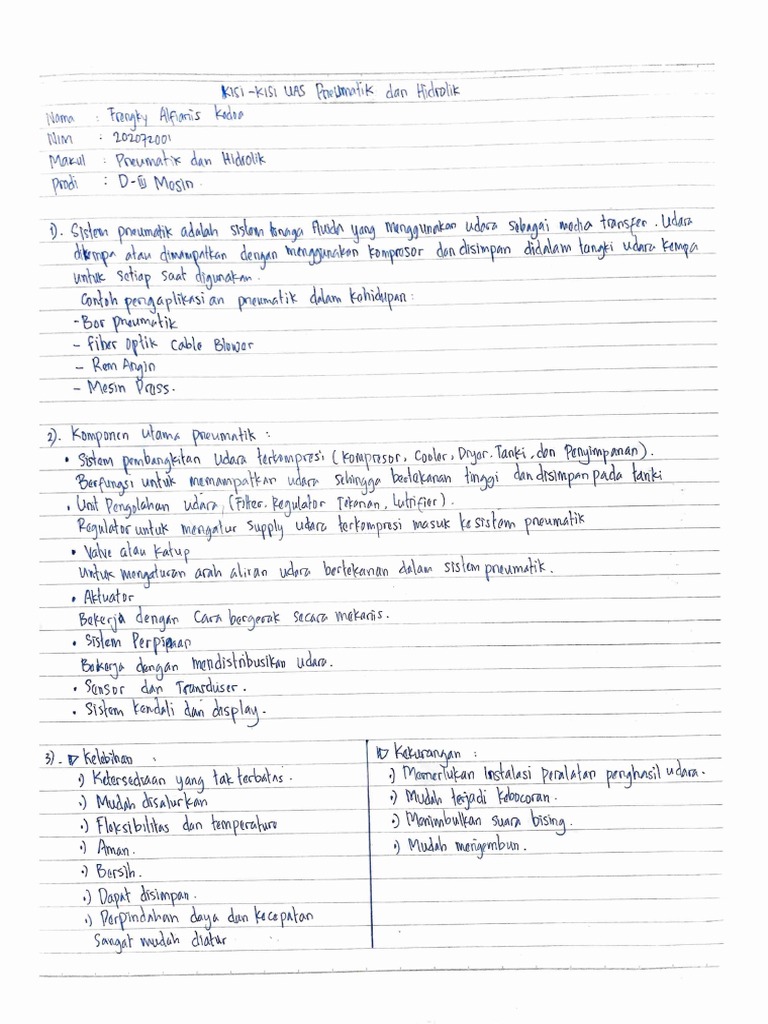 KISI-KISI UAS Pneumatik dan Hidrolik
Nama : Frengky Alfianis Kedoa
NIM : 202072001
Makul : Pneumatik dan Hidrolik
Prodi : D-III Mesin
1). Sistem pneumatik adalah sistem tenaga fluida yang menggunakan udara sebagai media transfer. Udara
dikempa atau dimampatkan dengan menggunakan kompresor dan disimpan didalam tangki udara kempa
untuk setiap saat digunakan.
Contoh pengaplikasian pneumatik dalam kehidupan:
- Bor pneumatik
- Fiber Optik Cable Blower
- Rem Angin
- Mesin Press.
2). Komponen utama pneumatik :
• Sistem pembangkitan udara terkompresi (Kompresor, Cooler, Dryer, Tanki, dan Penyimpanan).
Berfungsi untuk memampatkan udara sehingga bertekanan tinggi dan disimpan pada tanki
• Unit Pengolahan udara, (Filter, Regulator Tekanan, Lutrifier).
Regulator untuk mengatur supply udara terkompresi masuk ke sistem pneumatik
• Valve atau Katup
Untuk mengaturan arah aliran udara bertekanan dalam sistem pneumatik.
• Aktuator
Bekerja dengan cara bergerak secara mekanis.
• Sistem Perpipaan
Bekerja dengan mendistribusikan udara.
• Sensor dan Transduser.
• Sistem kendali dan display.
3). Kelebihan :
•) Ketersediaan yang tak terbatas.
•) Mudah disalurkan
•) Fleksibilitas dan temperature
•) Aman.
•) Bersih.
•) Dapat disimpan.
•) Perpindahan daya dan kecepatan
Sangat mudah diatur
Kekurangan :
•) Memerlukan instalasi peralatan penghasil udara.
•) Mudah terjadi kebocoran.
•) Menimbulkan suara bising.
•) Mudah mengembun.